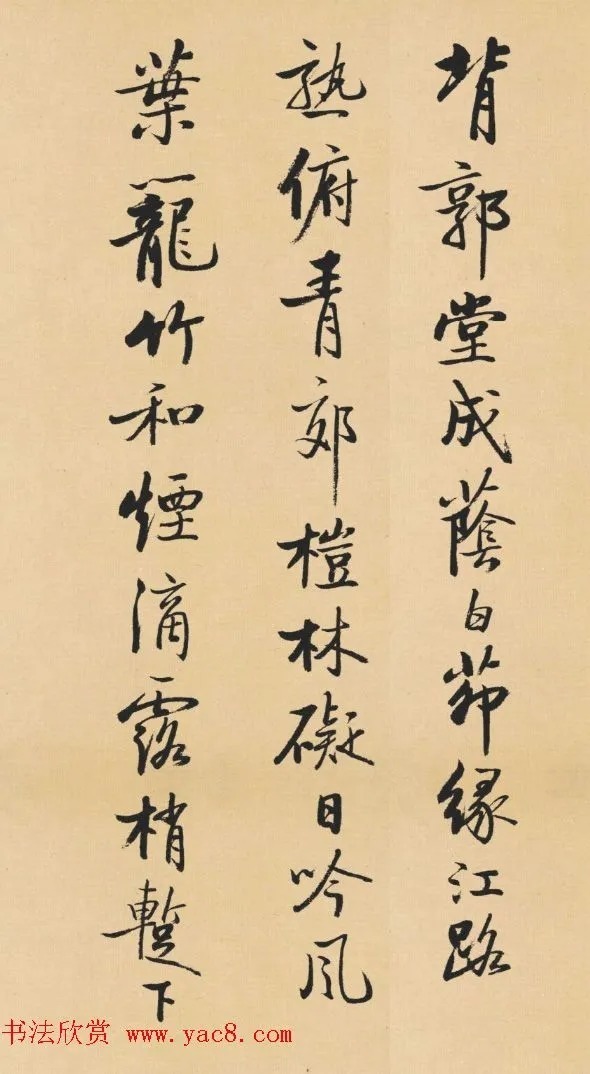 背郭堂成蔭白茆緣江路
熟俯青郊榿林礙日吟風
葉籠竹和煙滴露梢蹔下
书法欣赏 www.yac8.com